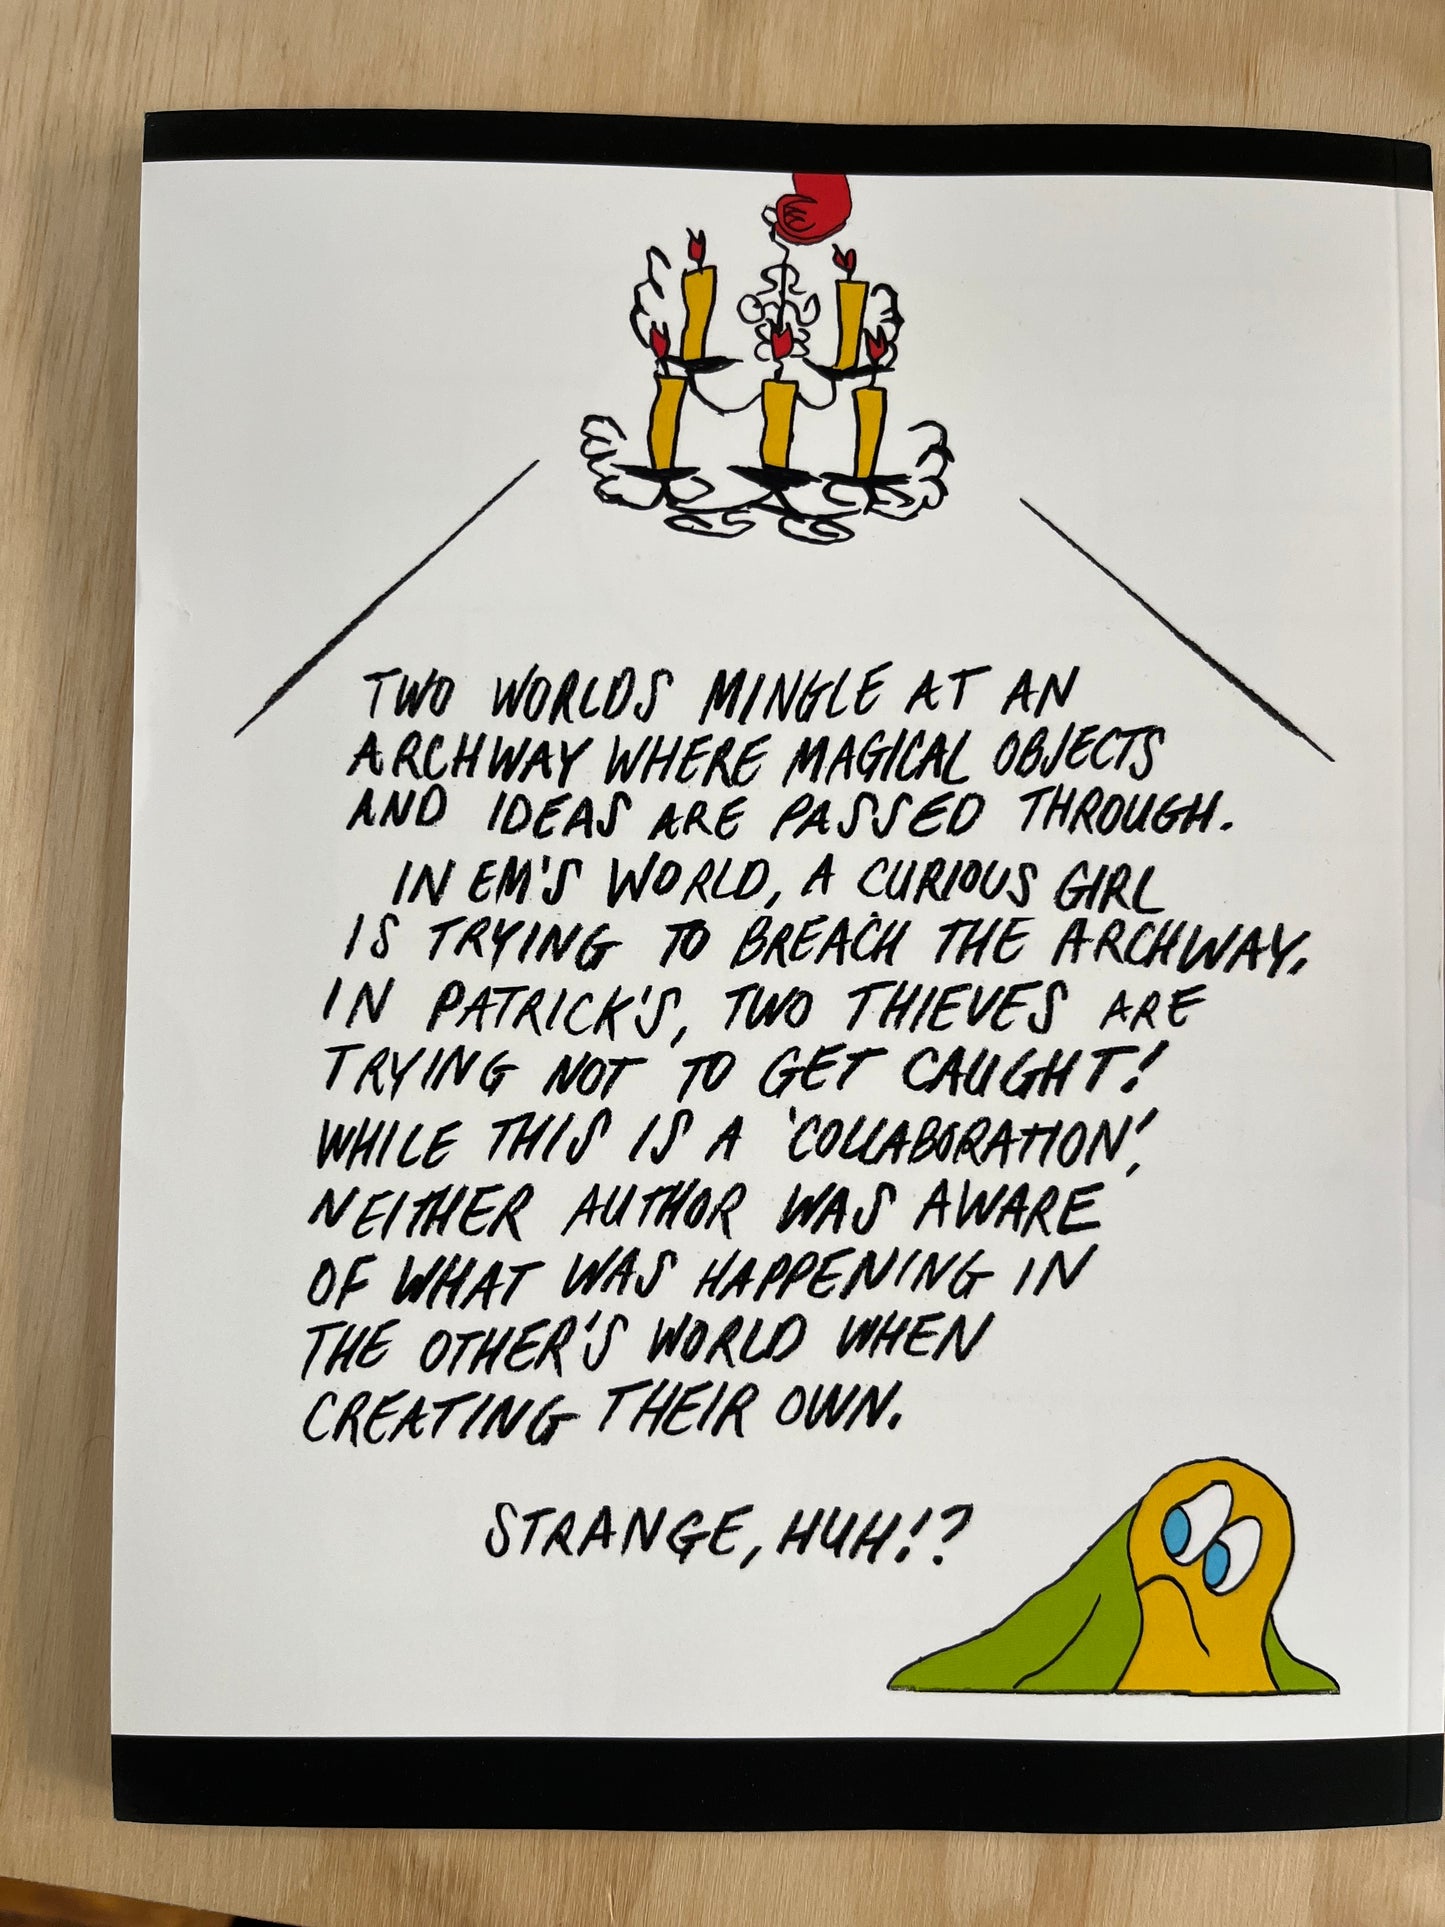 TWO WORLDS MINGLE AT AN
ARCHWAY WHERE MAGICAL OBJECTS
AND IDEAS ARE PASSED THROUGH.
IN EM'S WORLD, A CURIOUS GIRL
IS TRYING TO BREACH THE ARCHWAY.
IN PATRICK'S, TWO THIEVES ARE
TRYING NOT TO GET CAUGHT!
WHILE THIS IS A 'COLLABORATION',
NEITHER AUTHOR WAS AWARE
OF WHAT WAS HAPPENING IN
THE OTHER'S WORLD WHEN
CREATING THEIR OWN.
STRANGE, HUH!?